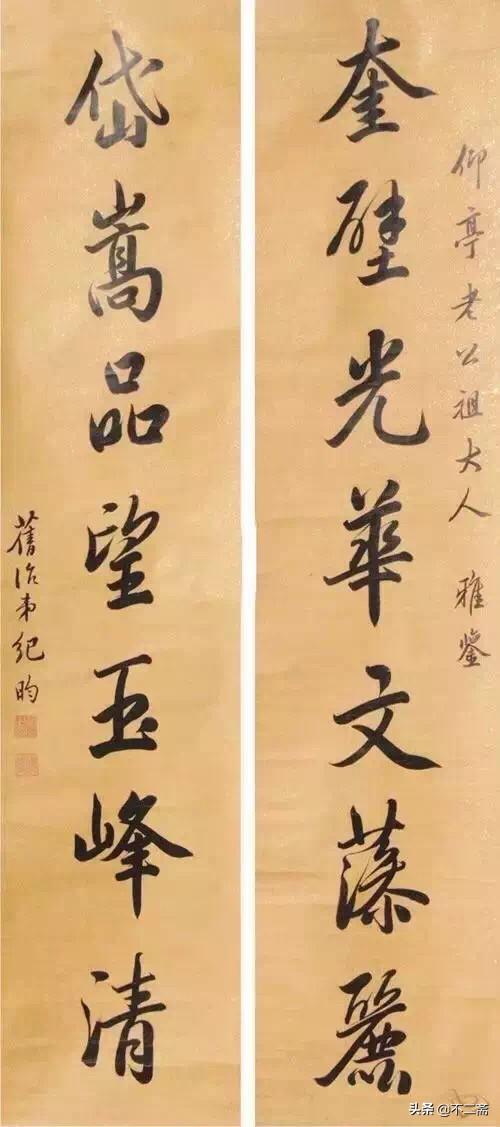 仰亭老公祖大人 雅鑒
奎壁光華文藻麗
岱嵩品望玉峰清
舊治弟紀昀
头条 @不二斋